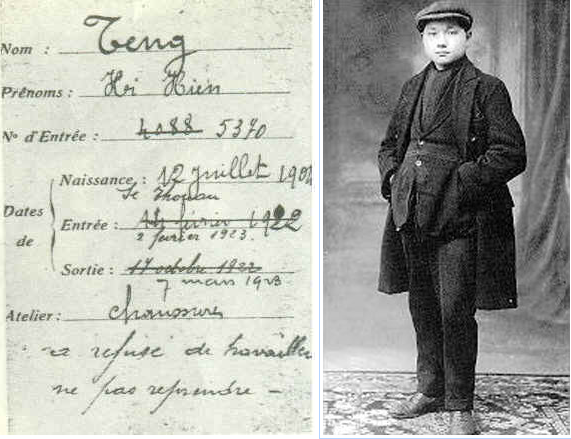 Nom : Teng
Prénoms : Hi Hien
N° d'Entrée : 4088 5370
Naissance : 12 Juillet 190
Se Thouan
Dates de
Entrée : 14 février 1922
2 février 1923.
Sortie : 17 octobre 1922
7 mars 1923
Atelier : Chaussures
a refusé de travailler
ne pas reprendre —